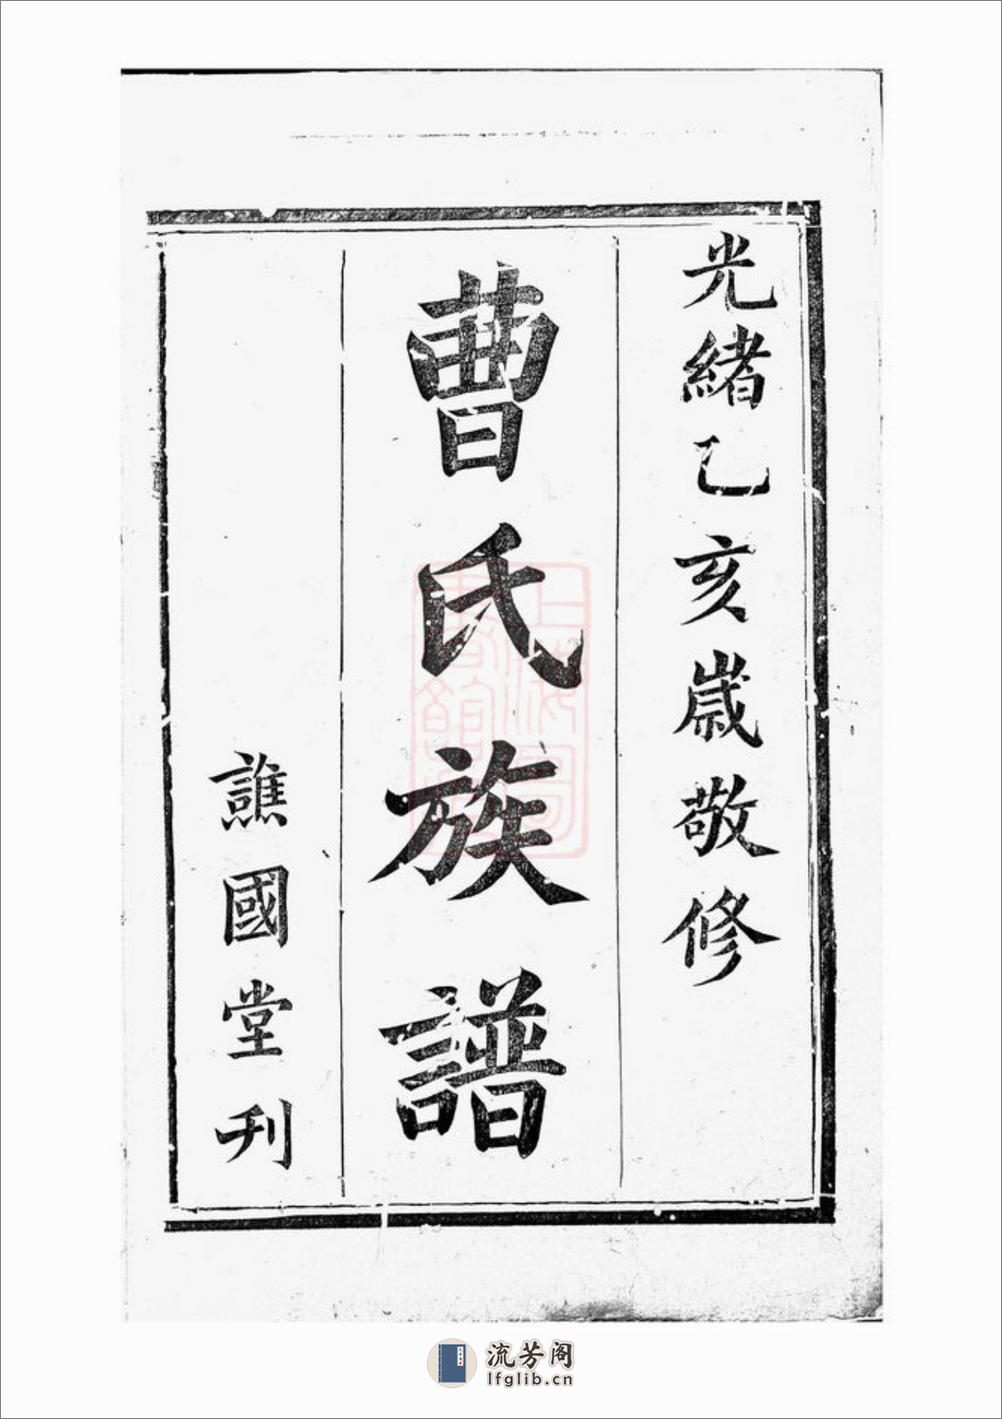 光緒乙亥歲敬修
曹氏族譜
譙國堂刊
上海圖書館藏
流芳阁
lfglib.cn